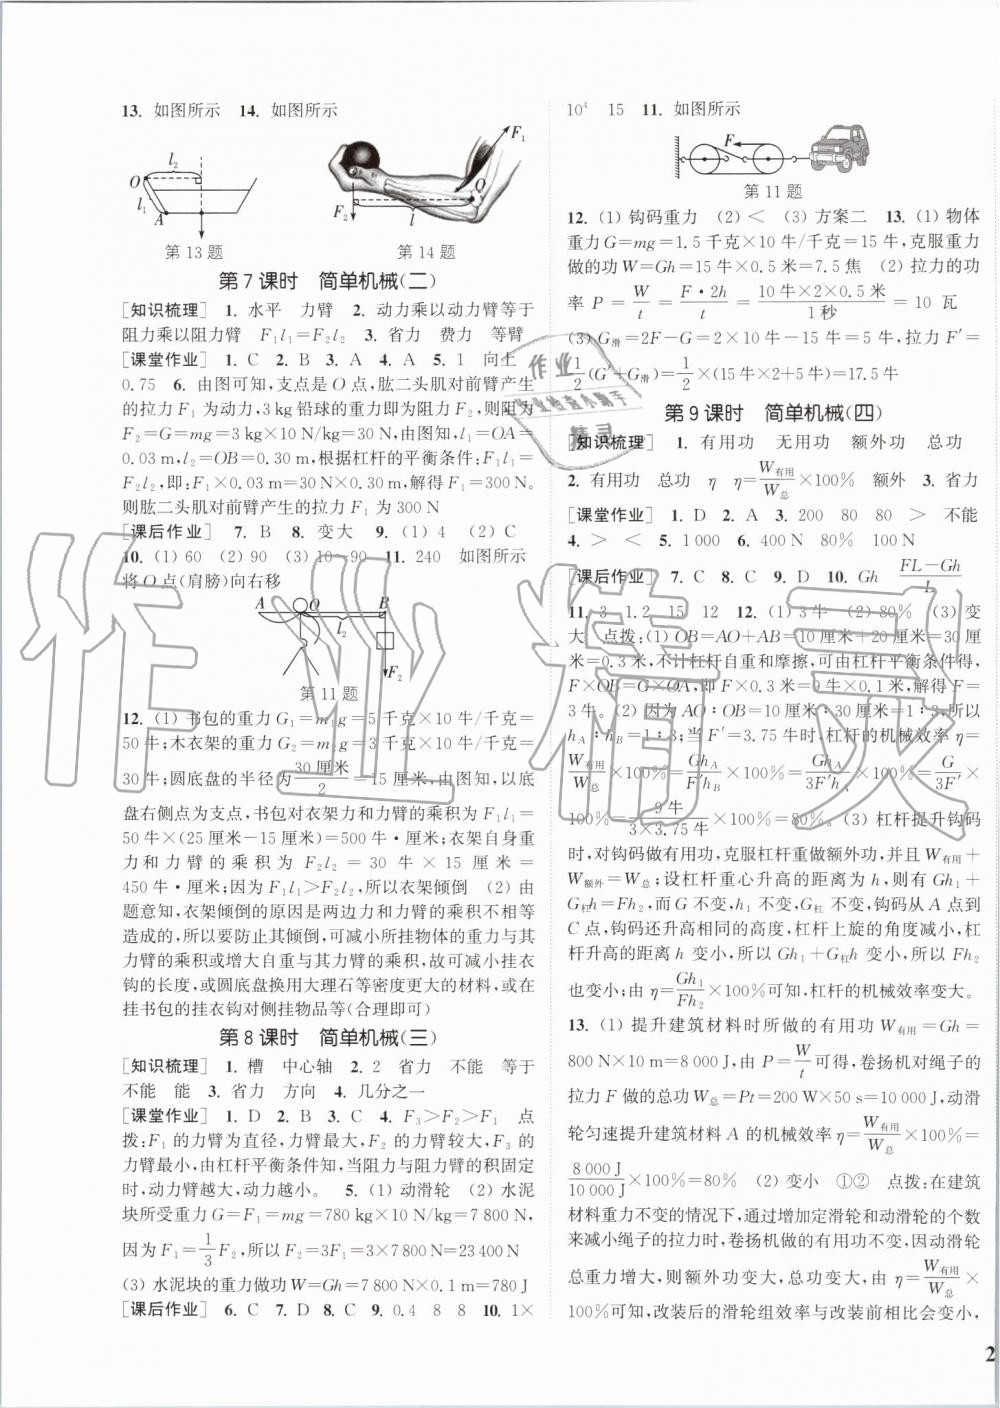 13. 如图所示　14. 如图所示
l₂
O
l₁
A
F₁
O
F₂
l
第 13 题　第 14 题
第 7 课时　简单机械(二)
[知识梳理]　1. 水平　力臂　2. 动力乘以动力臂等于
阻力乘以阻力臂　F₁l₁=F₂l₂　3. 省力　费力　等臂
[课堂作业]　1. C　2. B　3. A　4. A　5. 1　向上
0.75　6. 由图可知,支点是 O 点,肱二头肌对前臂产生
的拉力 F₁ 为动力,3 kg 铅球的重力即为阻力 F₂,则阻力
F₂=G=mg=3 kg×10 N/kg=30 N,由图知,l₁=OA=
0.03 m,l₂=OB=0.30 m,根据杠杆的平衡条件:F₁l₁=
F₂l₂,即:F₁×0.03 m=30 N×0.30 m,解得 F₁=300 N。
则肱二头肌对前臂产生的拉力 F₁ 为 300 N
[课后作业]　7. B　8. 变大　9. (1) 4　(2) C
10. (1) 60　(2) 90　(3) 10　90　11. 240　如图所示
将 O 点(肩膀)向右移
A　O　B
l₂
F₂
第 11 题
12. (1) 书包的重力 G₁=m₁g=5 千克×10 牛/千克=
50 牛;木衣架的重力 G₂=m₂g=3 千克×10 牛/千克=
30 牛;圆底盘的半径为 30 厘米/2=15 厘米,由图知,以底
盘右侧点为支点,书包对衣架力和力臂的乘积为 F₁l₁=
50 牛×(25 厘米-15 厘米)=500 牛·厘米;衣架自身重
力和力臂的乘积为 F₂l₂=30 牛×15 厘米=
450 牛·厘米;因为 F₁l₁>F₂l₂,所以衣架倾倒　(2) 由
题意知,衣架倾倒的原因是两边力和力臂的乘积不相等
造成的,所以要防止其倾倒,可减小所挂物体的重力与其
力臂的乘积或增大自重与其力臂的乘积,故可减小挂衣
钩的长度,或圆底盘换用大理石等密度更大的材料,或在
挂书包的挂衣钩对侧挂物品等(合理即可)
第 8 课时　简单机械(三)
[知识梳理]　1. 槽　中心轴　2. 2　省力　不能　等于
不能　能　3. 省力　方向　4. 几分之一
[课堂作业]　1. D　2. B　3. C　4. F₃>F₂>F₁　点
拨:F₁ 的力臂为直径,力臂最大,F₂ 的力臂较大,F₃ 的
力臂最小,由杠杆平衡条件知,当阻力与阻力臂的积固定
时,动力臂越大,动力越小。　5. (1) 动滑轮　(2) 水泥
块所受重力 G=F₁=mg=780 kg×10 N/kg=7 800 N,
因为 F₁=1/3 F₂,所以 F₂=3F₁=3×7 800 N=23 400 N
(3) 水泥块的重力做功 W=Gh=7 800 N×0.1 m=780 J
[课后作业]　6. C　7. D　8. C　9. 0.4　8　8　10. 1×
10⁴　15　11. 如图所示
F
第 11 题
12. (1) 钩码重力　(2) <　(3) 方案二　13. (1) 物体
重力 G=mg=1.5 千克×10 牛/千克=15 牛,克服重力
做的功 W=Gh=15 牛×0.5 米=7.5 焦　(2) 拉力的功
率 P=W/t=F·2h/t=10 牛×2×0.5 米/1 秒=10 瓦
(3) G滑=2F-G=2×10 牛-15 牛=5 牛,拉力 F′=
1/2(G′+G滑)=1/2×(15 牛×2+5 牛)=17.5 牛
第 9 课时　简单机械(四)
[知识梳理]　1. 有用功　无用功　额外功　总功
2. 有用功　总功　η　η=W有用/W总×100%　额外　3. 省力
[课堂作业]　1. D　2. A　3. 200　80　80　>　不能
4. >　<　5. 1 000　6. 400 N　80%　100 N
[课后作业]　7. C　8. C　9. D　10. Gh　(FL-Gh)/L
11. 3　1.2　15　12　12. (1) 3 牛　(2) 80%　(3) 变
大　点拨:(1) OB=AO+AB=10 厘米+20 厘米=30 厘
米=0.3 米,不计杠杆自重和摩擦,可由杠杆平衡条件得,
F×OB=G×OA,即 F×0.3 米=9 牛×0.1 米,解得 F=
3 牛。(2) 因为 AO∶OB=10 厘米∶30 厘米=1∶3,所以
hA∶hB=1∶3;当 F′=3.75 牛时,杠杆的机械效率 η=
W有用/W总×100%=GhA/F′hB×100%=GhA/3F′hA×100%=G/3F′×
100%=9 牛/(3×3.75 牛)×100%=80%。(3) 杠杆提升钩码
时,对钩码做有用功,克服杠杆重做额外功,并且 W有用+
W额外=W总;设杠杆重心升高的距离为 h,则有 Gh₁+
G杠h=Fh₂,而 G 不变,h₁ 不变,G杠 不变,钩码从 A 点到
C 点,钩码还升高相同的高度,杠杆上旋的角度减小,杠
杆升高的距离 h 变小,所以 Gh₁+G杠h 变小,所以 Fh₂
也变小;由 η=Gh₁/Fh₂×100%可知,杠杆的机械效率变大。
13. (1) 提升建筑材料时所做的有用功 W有用=Gh=
800 N×10 m=8 000 J,由 P=W/t可得,卷扬机对绳子的
拉力 F 做的总功 W总=Pt=200 W×50 s=10 000 J,动滑
轮匀速提升建筑材料 A 的机械效率 η=W有用/W总×100%=
8 000 J/10 000 J×100%=80%　(2) 变小　①②　点拨:在建筑
材料重力不变的情况下,通过增加定滑轮和动滑轮的个数
来减小绳子的拉力时,卷扬机的有用功不变,因动滑轮
总重力增大,则额外功变大,总功变大,由 η=W有用/W总×
100%可知,改装后的滑轮组效率与改装前相比会变小,
2
作业精灵
作业
作业检查小助手
精灵